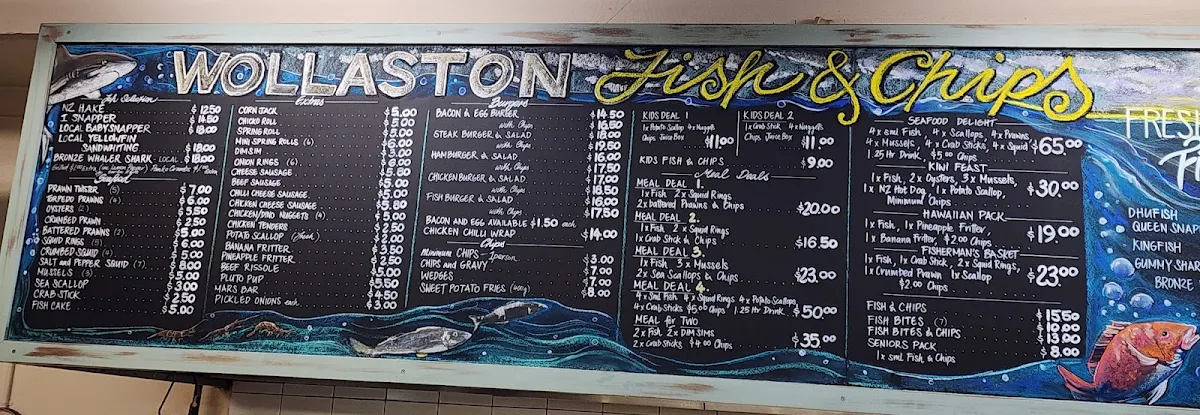 WOLLASTON Fish & Chips
Fish Selection
NZ HAKE $12.50
1. SNAPPER $14.50
LOCAL BABY SNAPPER $18.00
LOCAL YELLOWFIN
SANDWHITING $18.00
BRONZE WHALER SHARK - LOCAL $18.00
Seafood
PRAWN TWISTER (5) $7.00
TORPEDO PRAWNS (4) $6.00
OYSTERS (2) $5.80
CRUMBED PRAWN $2.50
BATTERED PRAWNS (2) $5.00
SQUID RINGS (5) $6.00
CRUMBED SQUID (4) $5.00
SALT and PEPPER SQUID (7) $8.00
MUSSELS (3) $5.00
SEA SCALLOP $3.00
CRAB STICK $2.50
FISH CAKE $5.00
Extras
CORN JACK $5.00
CHICKO ROLL $5.00
SPRING ROLL $5.00
MINI SPRING ROLLS (6) $6.00
DIM SIM $3.00
ONION RINGS (6) $6.00
CHEESE SAUSAGE $5.80
BEEF SAUSAGE $5.00
CHILLI CHEESE SAUSAGE $5.80
CHICKEN CHEESE SAUSAGE $5.80
CHICKEN/DINO NUGGETS (4) $5.00
CHICKEN TENDERS $2.50
POTATO SCALLOP $2.00
BANANA FRITTER $3.50
PINEAPPLE FRITTER $2.50
BEEF RISSOLE $5.00
PLUTO PUP $5.00
MARS BAR $4.50
PICKLED ONIONS each $3.00
Burgers
BACON & EGG BURGER $14.50
with Chips $16.50
STEAK BURGER & SALAD $18.00
with Chips $19.50
HAMBURGER & SALAD $16.00
with Chips $17.50
CHICKEN BURGER & SALAD $17.00
with Chips $18.50
FISH BURGER & SALAD $16.00
with Chips $17.50
BACON AND EGG AVAILABLE $1.50 each
CHICKEN CHILLI WRAP $14.00
Chips
Minimum CHIPS - 1 person $3.00
CHIPS and GRAVY $7.00
WEDGES $7.00
SWEET POTATO FRIES (400g) $8.00
KIDS DEAL 1
1x Potato Scallop 4x Nuggets
Chips Juice Box $11.00
KIDS DEAL 2
1x Crab Stick 4x Nuggets
Chips Juice Box $11.00
KIDS FISH & CHIPS $9.00
Meal Deals
MEAL DEAL 1.
1x Fish 2x Squid Rings
2x battered Prawns & Chips $20.00
MEAL DEAL 2.
1x Fish 2x Squid Rings
1x Crab Stick & Chips $16.50
MEAL DEAL 3.
1x Fish 3x Mussels
2x Sea Scallops & Chips $23.00
MEAL DEAL 4.
4x sml Fish 4x Squid Rings 4x Potato Scallops
4x Crab Sticks $5.00 Chips 1.25 ltr Drink $50.00
MEAL for TWO
2x Fish 2x DIM SIMS
2x Crab Sticks $4.00 Chips $35.00
SEAFOOD DELIGHT
4x sml Fish, 4x Scallops, 4x Prawns
4x Mussels, 4x Crab Sticks, 4x Squid
1.25 Hr Drink $5.00 Chips $65.00
KIWI FEAST
1x Fish, 2x Oysters, 3x Mussels,
1x NZ Hot Dog, 1x Potato Scallop,
Minimum Chips $30.00
HAWAIIAN PACK
1x Fish, 1x Pineapple Fritter,
1x Banana Fritter, $2.00 Chips $19.00
FISHERMAN'S BASKET
1x Fish, 1x Crab Stick, 2x Squid Rings,
1x Crumbed Prawn 1x Scallop
$2.00 Chips $23.00
FISH & CHIPS $15.50
FISH BITES (7) $10.00
FISH BITES & CHIPS $13.00
SENIORS PACK $8.00
1x sml Fish & Chips
FRESH
DHUFISH
QUEEN SNAP
KINGFISH
GUMMY SHAR
BRONZE